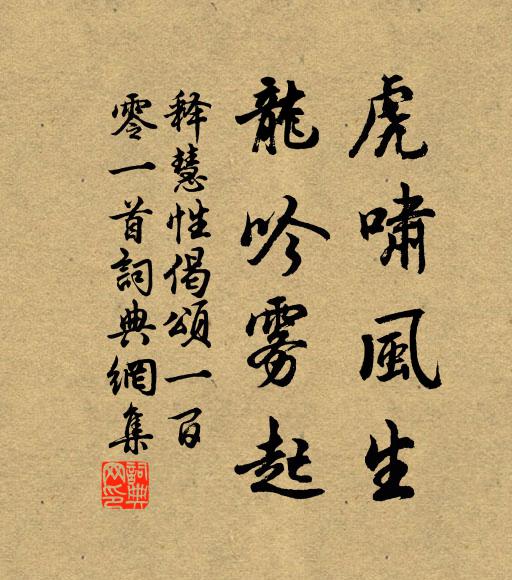 虎嘯風生
龍吟雾起
释慧性偈頌一百
零一首詞典網集
詞典網印